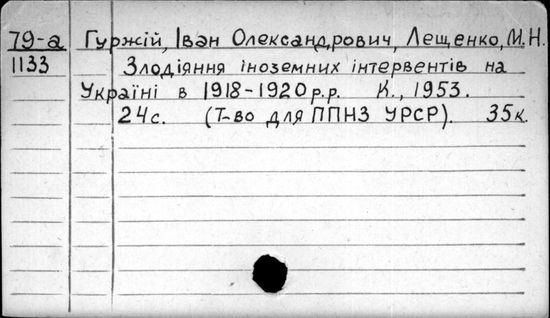 79-а Гуржій, Іван Олександрович, Лещенко, М.Н.
1133 Злодіяння іноземних інтервентів на
Україні в 1918-1920 р.р. К., 1953.
24с. (Т-во для ППНЗ УРСР). 35к.